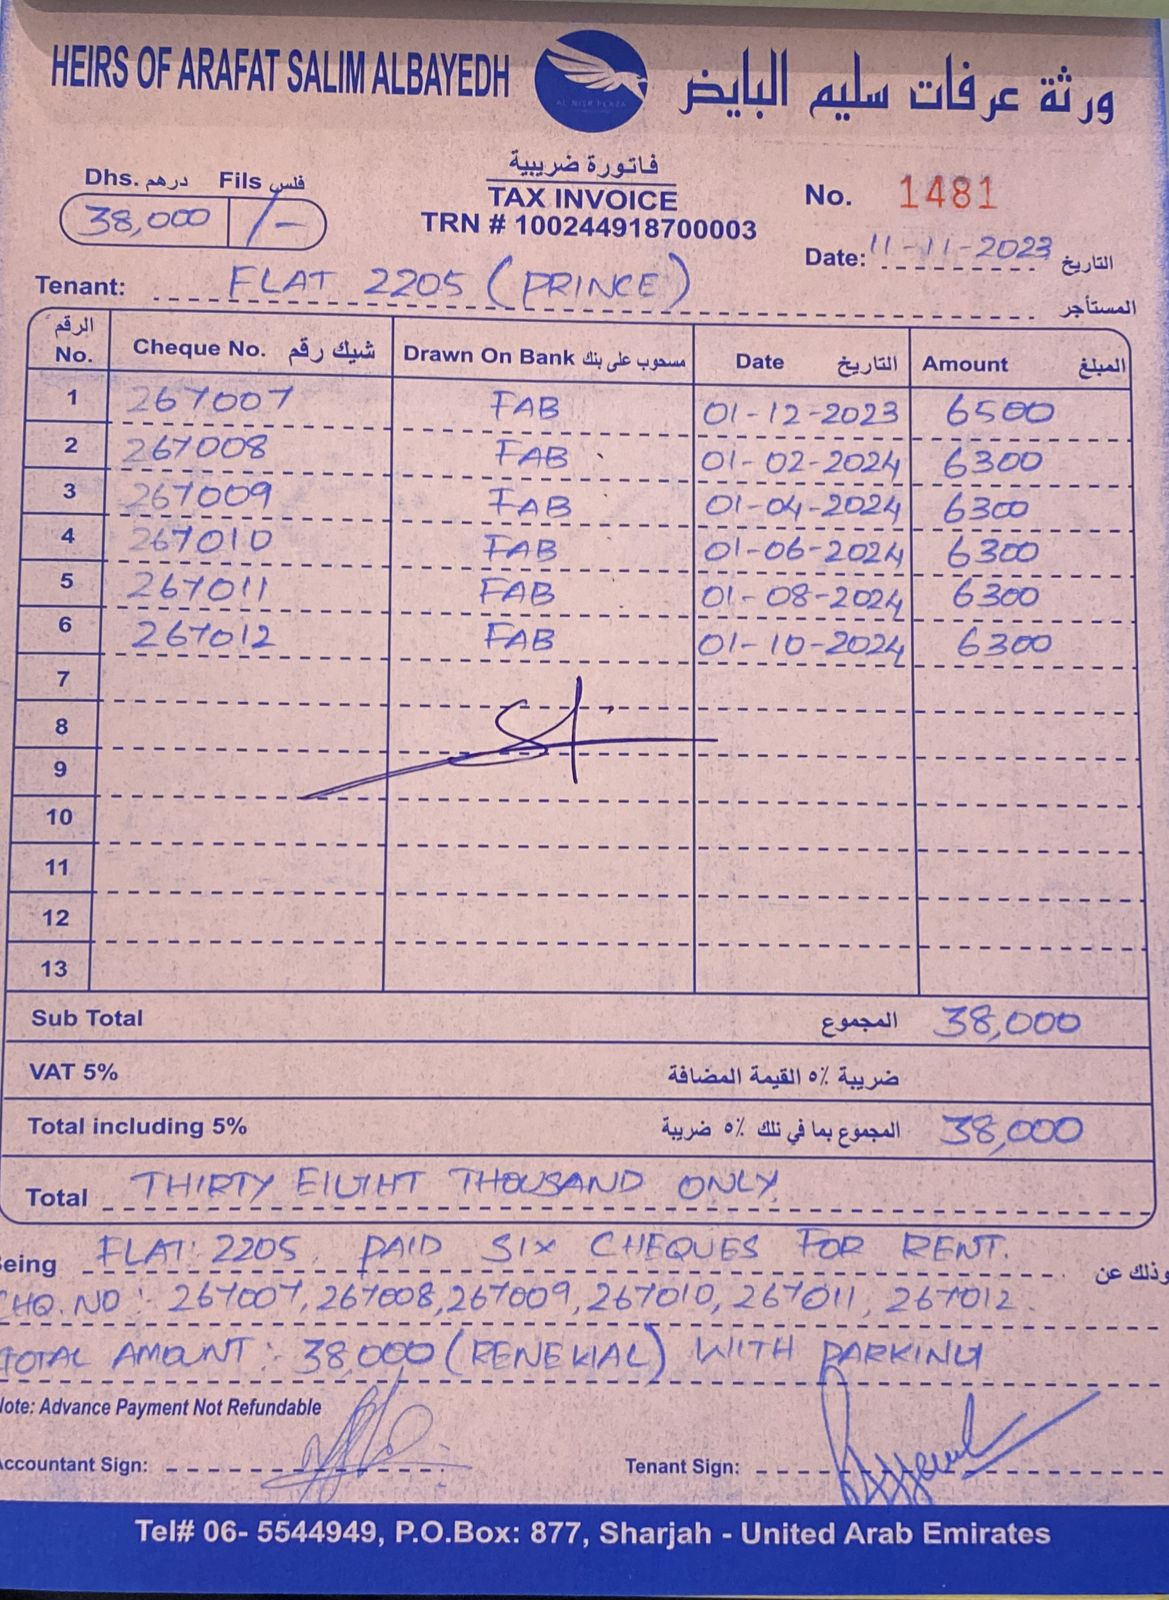 HEIRS OF ARAFAT SALIM ALBAYEDH
AL NISR PLAZA
ورثة عرفات سليم البايض
فاتورة ضريبية
TAX INVOICE
TRN # 100244918700003
Dhs. درهم Fils فلس
38,000 /-
No. 1481
Date: 11-11-2023 التاريخ
Tenant: FLAT 2205 (PRINCE) المستأجر
الرقم No. Cheque No. شيك رقم Drawn On Bank مسحوب على بنك Date التاريخ Amount المبلغ
1 267007 FAB 01-12-2023 6500
2 267008 FAB 01-02-2024 6300
3 267009 FAB 01-04-2024 6300
4 267010 FAB 01-06-2024 6300
5 267011 FAB 01-08-2024 6300
6 267012 FAB 01-10-2024 6300
7
8
9
10
11
12
13
Sub Total المجموع 38,000
VAT 5% ضريبة ٥٪ القيمة المضافة
Total including 5% المجموع بما في ذلك ٥٪ ضريبة 38,000
Total THIRTY EIGHT THOUSAND ONLY.
eing FLAT: 2205. PAID SIX CHEQUES FOR RENT. وذلك عن
CHQ.NO :- 267007, 267008, 267009, 267010, 267011, 267012.
TOTAL AMOUNT :- 38,000 (RENEWAL) WITH PARKING
Note: Advance Payment Not Refundable
Accountant Sign:
Tenant Sign:
Tel# 06- 5544949, P.O.Box: 877, Sharjah - United Arab Emirates